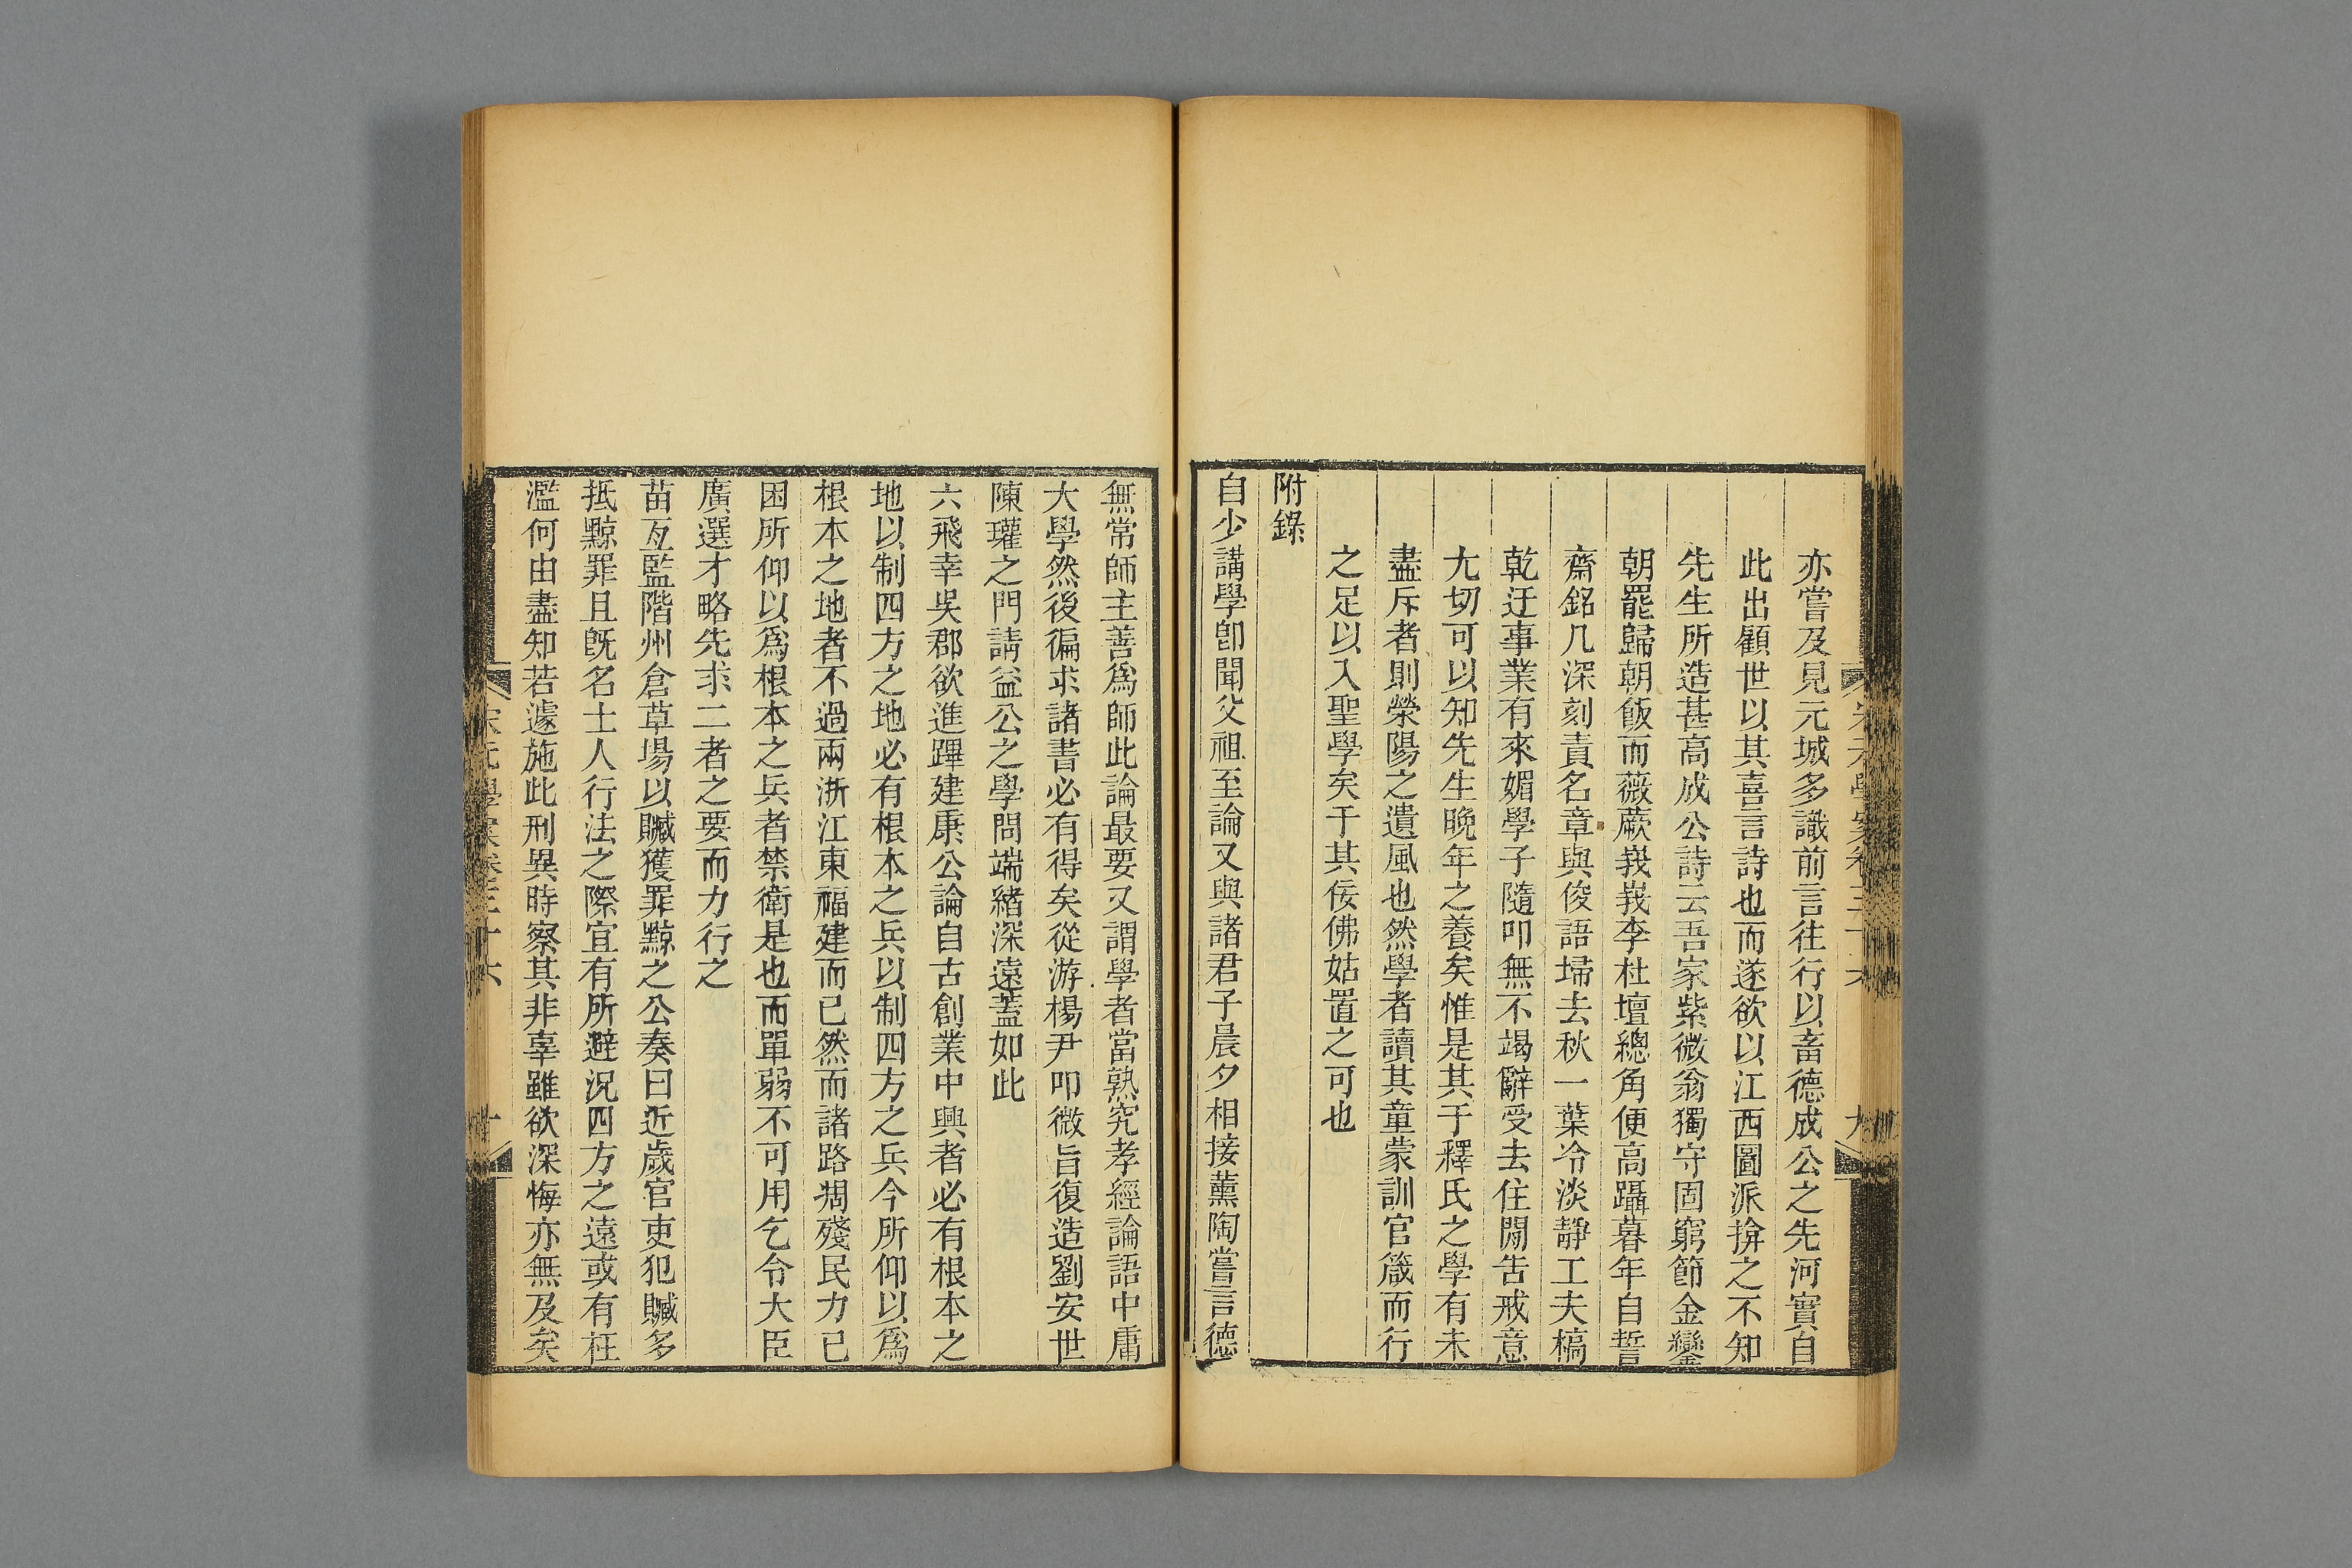 亦嘗及見元城多識前言往行以畜德成公之先河實自
此出顧世以其喜言詩也而遂欲以江西圖派揜之不知
先生所造甚高成公詩云吾家紫微翁獨守固窮節金鑾
朝罷歸朝飯而薇蕨峩峩李杜壇總角便高躡暮年自誓
齋銘几深刻責名章與俊語埽去秋一葉冷淡靜工夫槁
乾迂事業有來媚學子隨叩無不竭辭受去住閒告戒意
尢切可以知先生晚年之養矣惟是其于釋氏之學有未
盡斥者則滎陽之遺風也然學者讀其童蒙訓官箴而行
之足以入聖學矣于其佞佛姑置之可也
附錄
自少講學卽聞父祖至論又與諸君子晨夕相接薰陶嘗言德
無常師主善爲師此論最要又謂學者當熟究孝經論語中庸
大學然後徧求諸書必有得矣從游楊尹叩微旨復造劉安世
陳瓘之門請益公之學問端緒深遠蓋如此
六飛幸吳郡欲進蹕建康公論自古創業中興者必有根本之
地以制四方之地必有根本之兵以制四方之兵今所仰以爲
根本之地者不過兩浙江東福建而已然而諸路凋殘民力已
困所仰以爲根本之兵者禁衛是也而單弱不可用乞令大臣
廣選才略先求二者之要而力行之
苗亙監階州倉草場以贓獲罪黥之公奏曰近歲官吏犯贓多
抵黥罪且旣名士人行法之際宜有所避況四方之遠或有枉
濫何由盡知若遽施此刑異時察其非辜雖欲深悔亦無及矣
宋元學案卷三十六
十